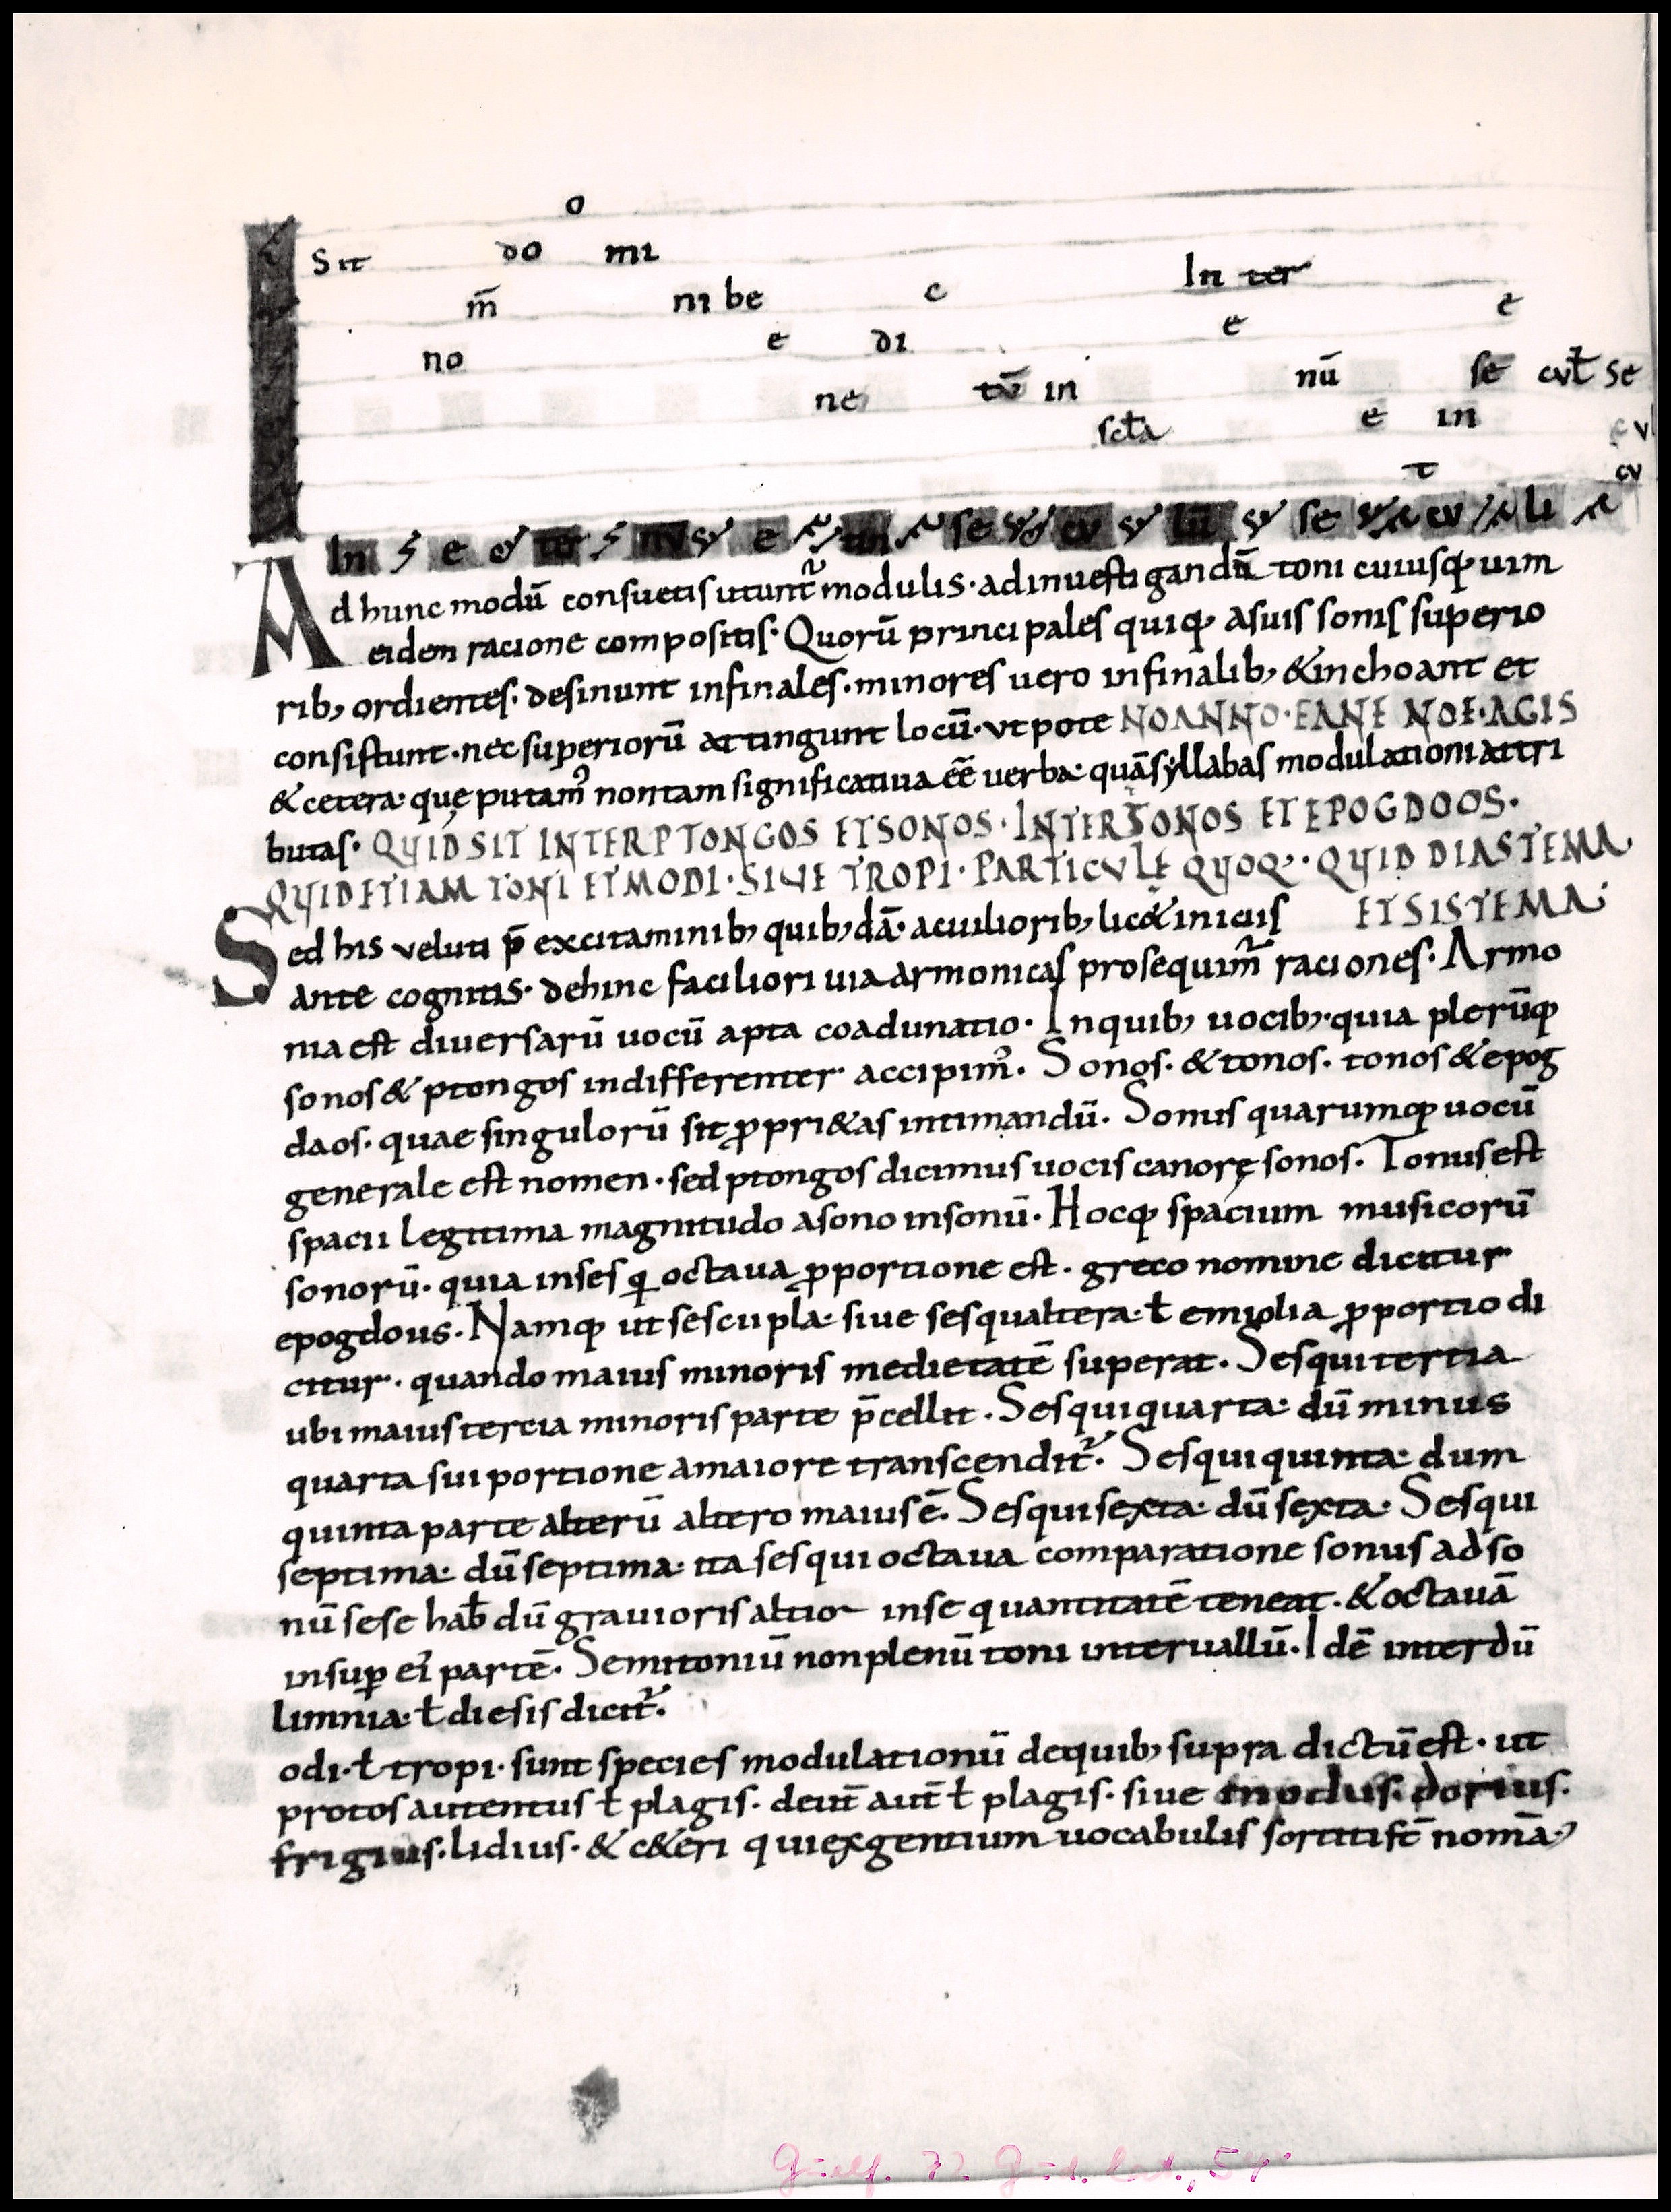 o
Sit do mi
m̄ ni be e In ter
no e di e e
ne tū in nū se cul̄ se
scl̄a e in cv
t cv
In e ter nv e un se cv lū se cv li
Ad hunc modū consuetis utunt᷑ modulis· adinuestigandū toni cuiusq; uim
eidem racione compositis· Quorū principales quiq; asuis sonis superio
rib; ordientes· desinunt infinales· minores uero infinalib; &inchoant et
consistunt· nec superiorū attingunt locū· vt pote NOANNO·EANE NOE·AGIS
&cetera· quę putamꝰ nontam significatiua eē̄ verba· quāsyllabas modulationi attri
butas· QUID SIT INTER PTONGOS ET SONOS· INTER TONOS ET EPOGDOOS·
QUID ETIAM TONI ET MODI· SIUE TROPI· PARTICVLĘ QUOQ;· QUID DIASTEMA
ET SISTEMA·
Sed his veluti p̄ excitaminib; quib;dā· acuilioribꝫ lic& inicuis
ante cognitis· dehinc faciliori uia armonicas prosequim᷑ raciones· Armo
nia est diuersarū uocū apta coadunatio· Inquib; uocib;· quia plerūq;
sonos & ptongos indifferenter accipimꝰ· Sonos· & tonos· tonos & epog
daos· quae singulorū sit ꝓpri&as intimandū· Sonus quarumq; uocū
generale est nomen· sed ptongos dicimus uocis canorę sonos· Tonus est
spacii legitima magnitudo asono insonū· Hocq; spacium musicorū
sonorū· quia inses qi octaua ꝓportione est· greco nomine dicitur
epogdous· Namq; ut sescupla· siue sesqualtera· ł emiolia ꝓportio di
citur· quando maius minoris medietatē superat· Sesquitertia
ubi maius tercia minoris parte p̄cellit· Sesquiquarta· dū minus
quarta sui portione amaiore transcendit᷑· Sesquiquinta· dum
quinta parte alterū altero maius ē· Sesquisexta· dū sexta· Sesqui
septima· dū septima· ita sesquioctaua comparatione sonus ad so
nū sese hab̄ dū grauioris altior inse quantitatē teneat· & octauā
insuꝑ eiꝰ partē· Semitoniū nonplenū toni interuallū· Idē interdū
limnia· ł diesis dicit᷑·
odi· ł tropi· sunt species modulationū dequib; supra dictū est· ut
protos autentus ł plagis· deut̄ aut̄ ł plagis· siue modus· dorius·
frigius· lidius· & c&eri qui ex gentium uocabulis sortiti st̄ nomā·
Guelf. 72 Gud. lat., 54ʳ